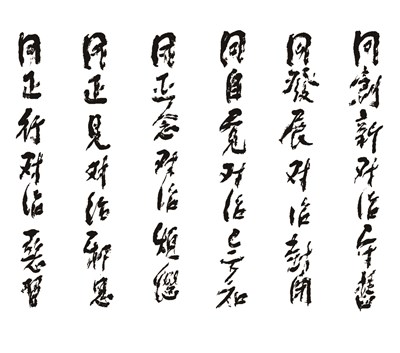 用創新对治守舊
用發展对治封閉
用自覺对治無知
用正念对治煩惱
用正見对治邪思
用正行对治惡習